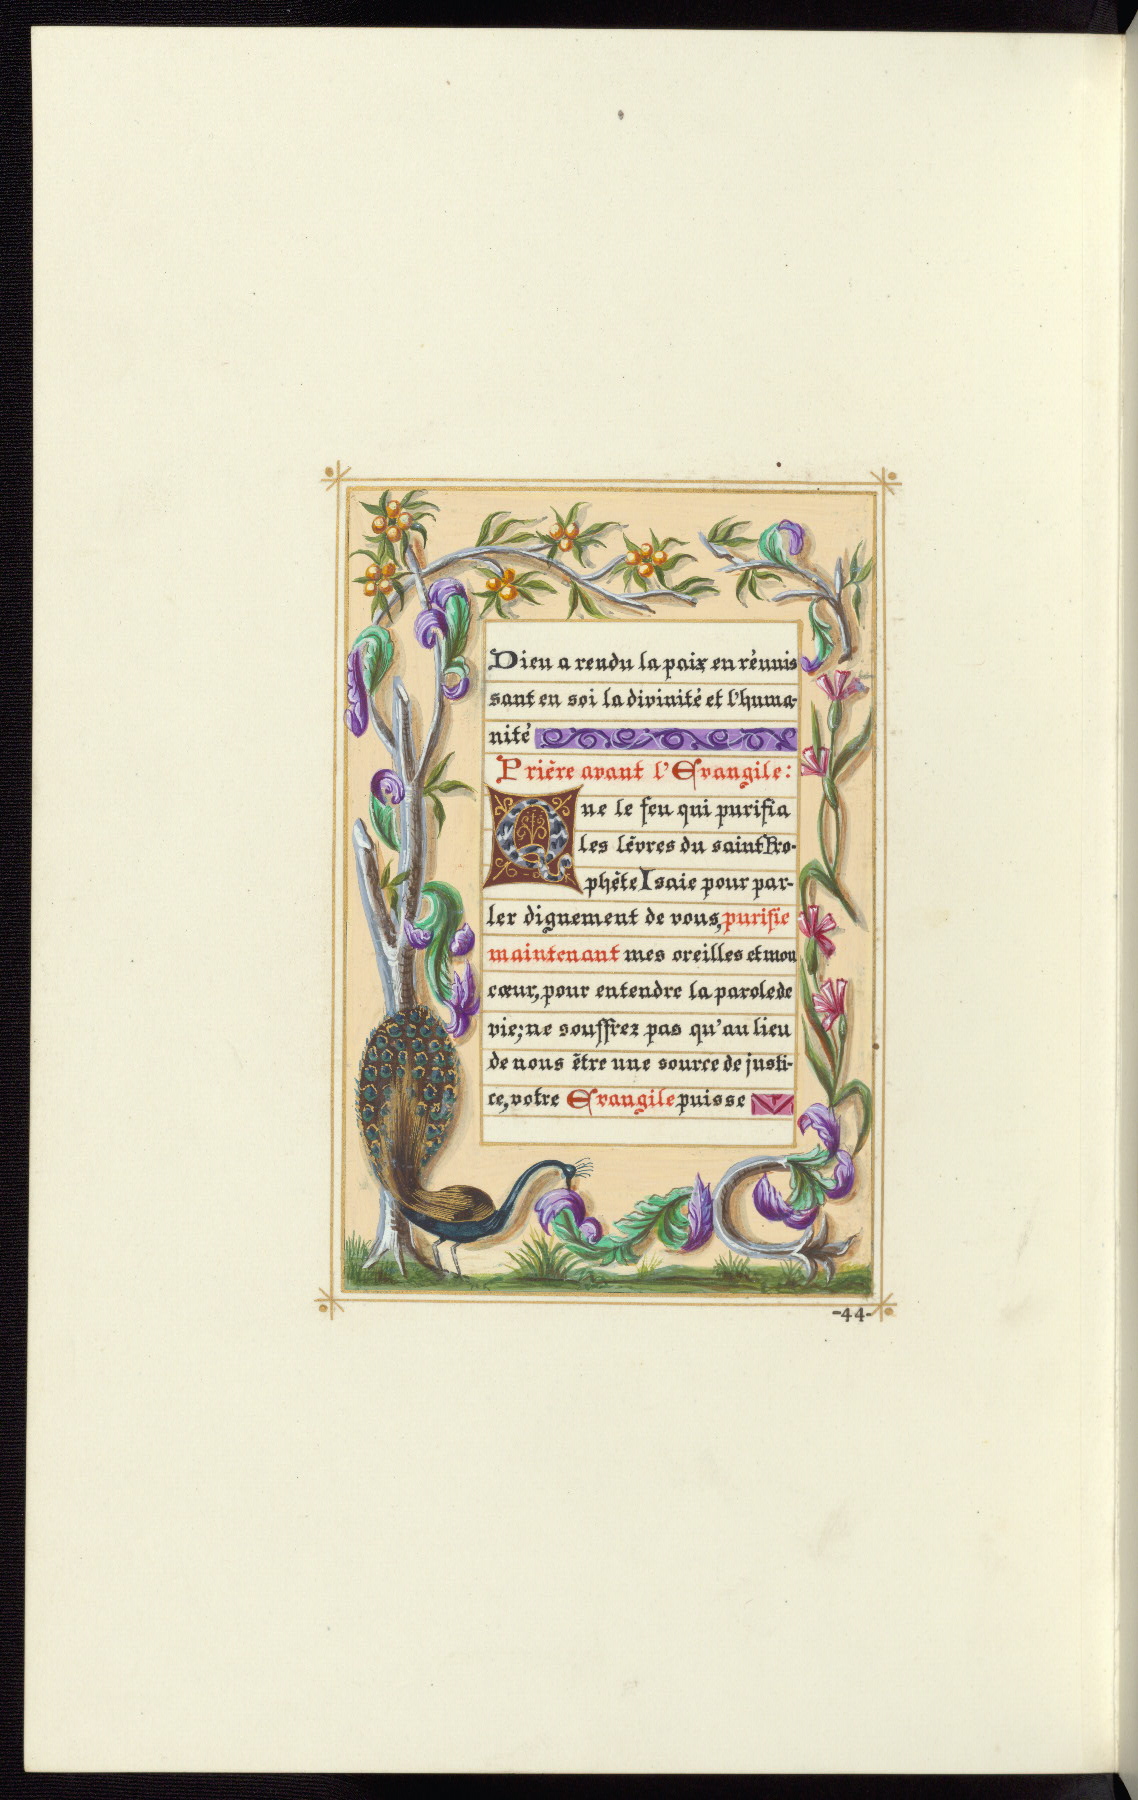 Dieu a rendu la paix en réunis
sant en soi la divinité et l'huma-
nité
Prière avant l'Evangile:
Que le feu qui purifia
les lèvres du saint Pro-
phète Isaie pour par-
ler dignement de vous, purifie
maintenant mes oreilles et mon
cœur, pour entendre la parole de
vie; ne souffrez pas qu'au lieu
de nous être une source de justi-
ce, votre Evangile puisse
-44-